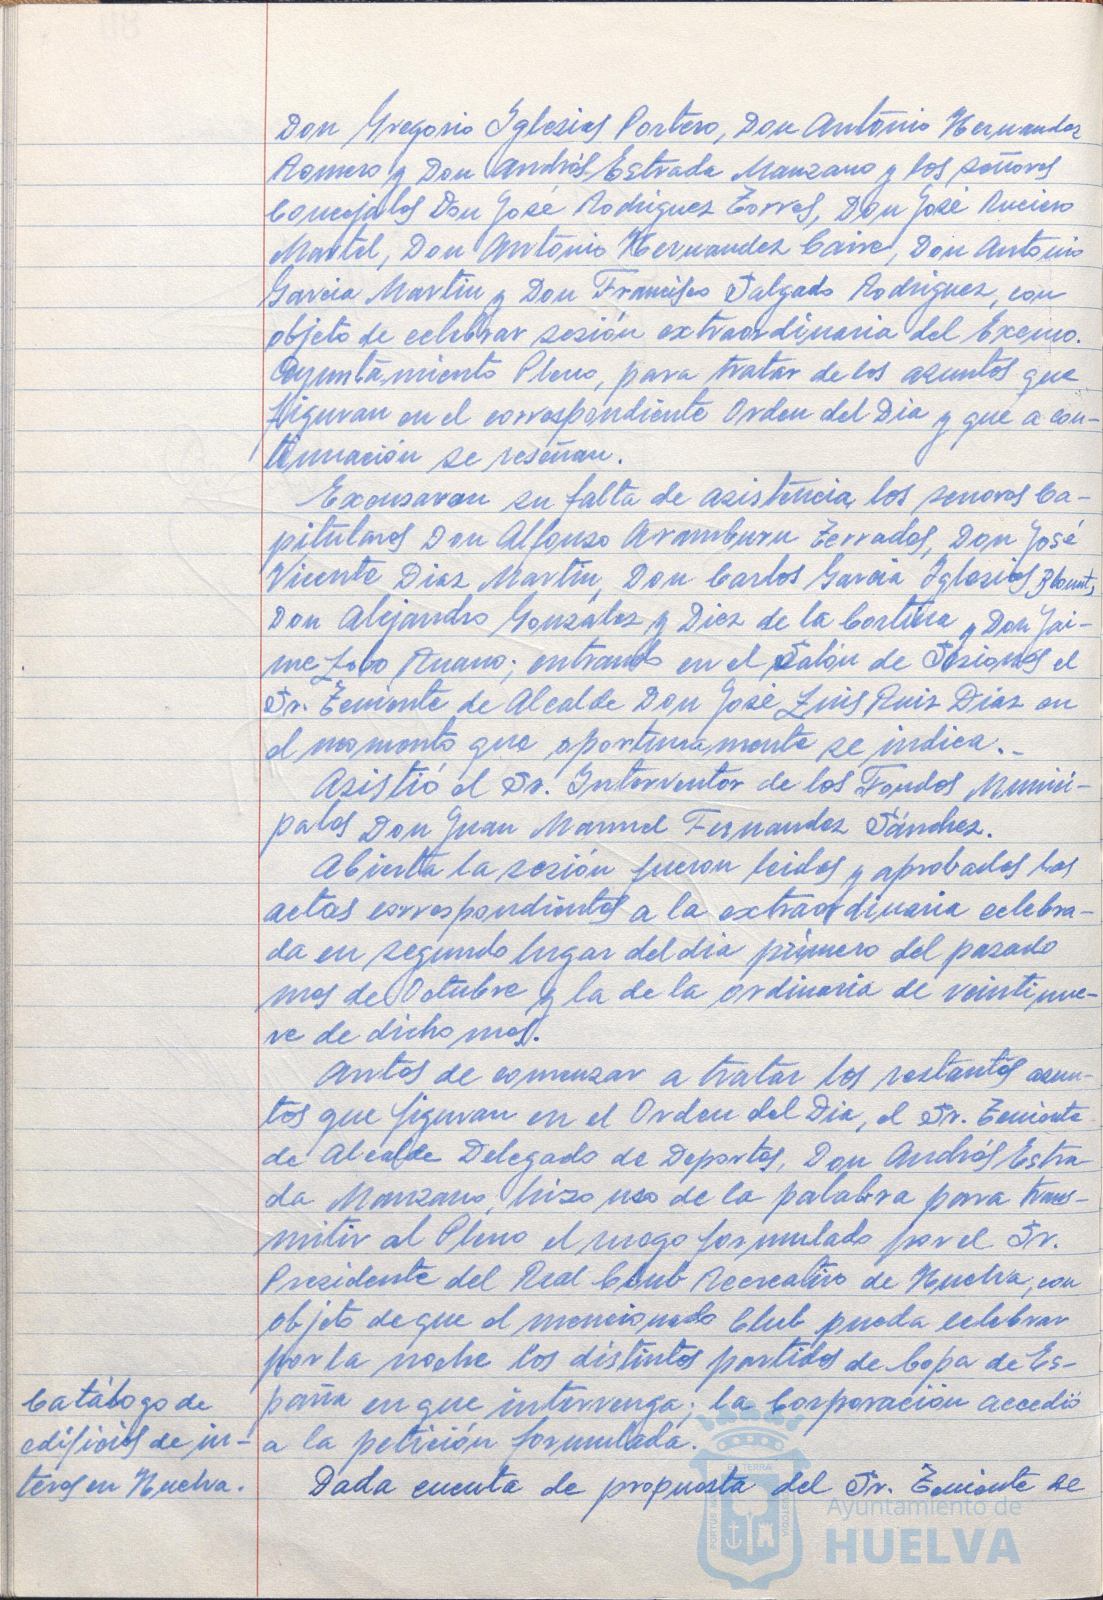 Don Gregorio Iglesias Portero, Don Antonio Hernandez
Romero y Don Andrés Estrada Manzano y los señores
Concejales Don José Rodriguez Torres, Don José Ruciero
Martel, Don Antonio Hernandez Caire, Don Antonio
Garcia Martin y Don Francisco Salgado Rodriguez, con
objeto de celebrar sesión extraordinaria del Excmo.
Ayuntamiento Pleno, para tratar de los asuntos que
figuran en el correspondiente Orden del Dia y que a con-
tinuación se reseñan.
Excusaron su falta de asistencia, los señores Ca-
pitulares Don Alfonso Aramburu Terrades, Don José
Vicente Diaz Martin, Don Carlos Garcia Iglesias,
Don Alejandro Gonzalez y Diez de la Cortina y Don Jai-
me Lobo Ruano; entrando en el Salón de Sesiones el
Sr. Teniente de Alcalde Don José Luis Ruiz Diaz en
el momento que oportunamente se indica.-
Asistió el Sr. Interventor de los Fondos Munici-
pales Don Juan Manuel Fernandez Sánchez.
Abierta la sesión fueron leidos y aprobados las
actas correspondientes a la extraordinaria celebra-
da en segundo lugar del dia primero del pasado
mes de Octubre y la de la ordinaria de veintinue-
ve de dicho mes.
Antes de comenzar a tratar los restantes asun-
tos que figuran en el Orden del Dia, el Sr. Teniente
de Alcalde Delegado de Deportes, Don Andrés Estra-
da Manzano, hizo uso de la palabra para trans-
mitir al Pleno el ruego formulado por el Sr.
Presidente del Real Club Recreativo de Huelva, con
objeto de que el mencionado Club pueda celebrar
por la noche los distintos partidos de Copa de Es-
paña en que intervenga; la Corporación accedió
a la petición formulada.
Catálogo de
edificios de in-
teres en Huelva.
Dada cuenta de propuesta del Sr. Teniente de
Ayuntamiento de
HUELVA